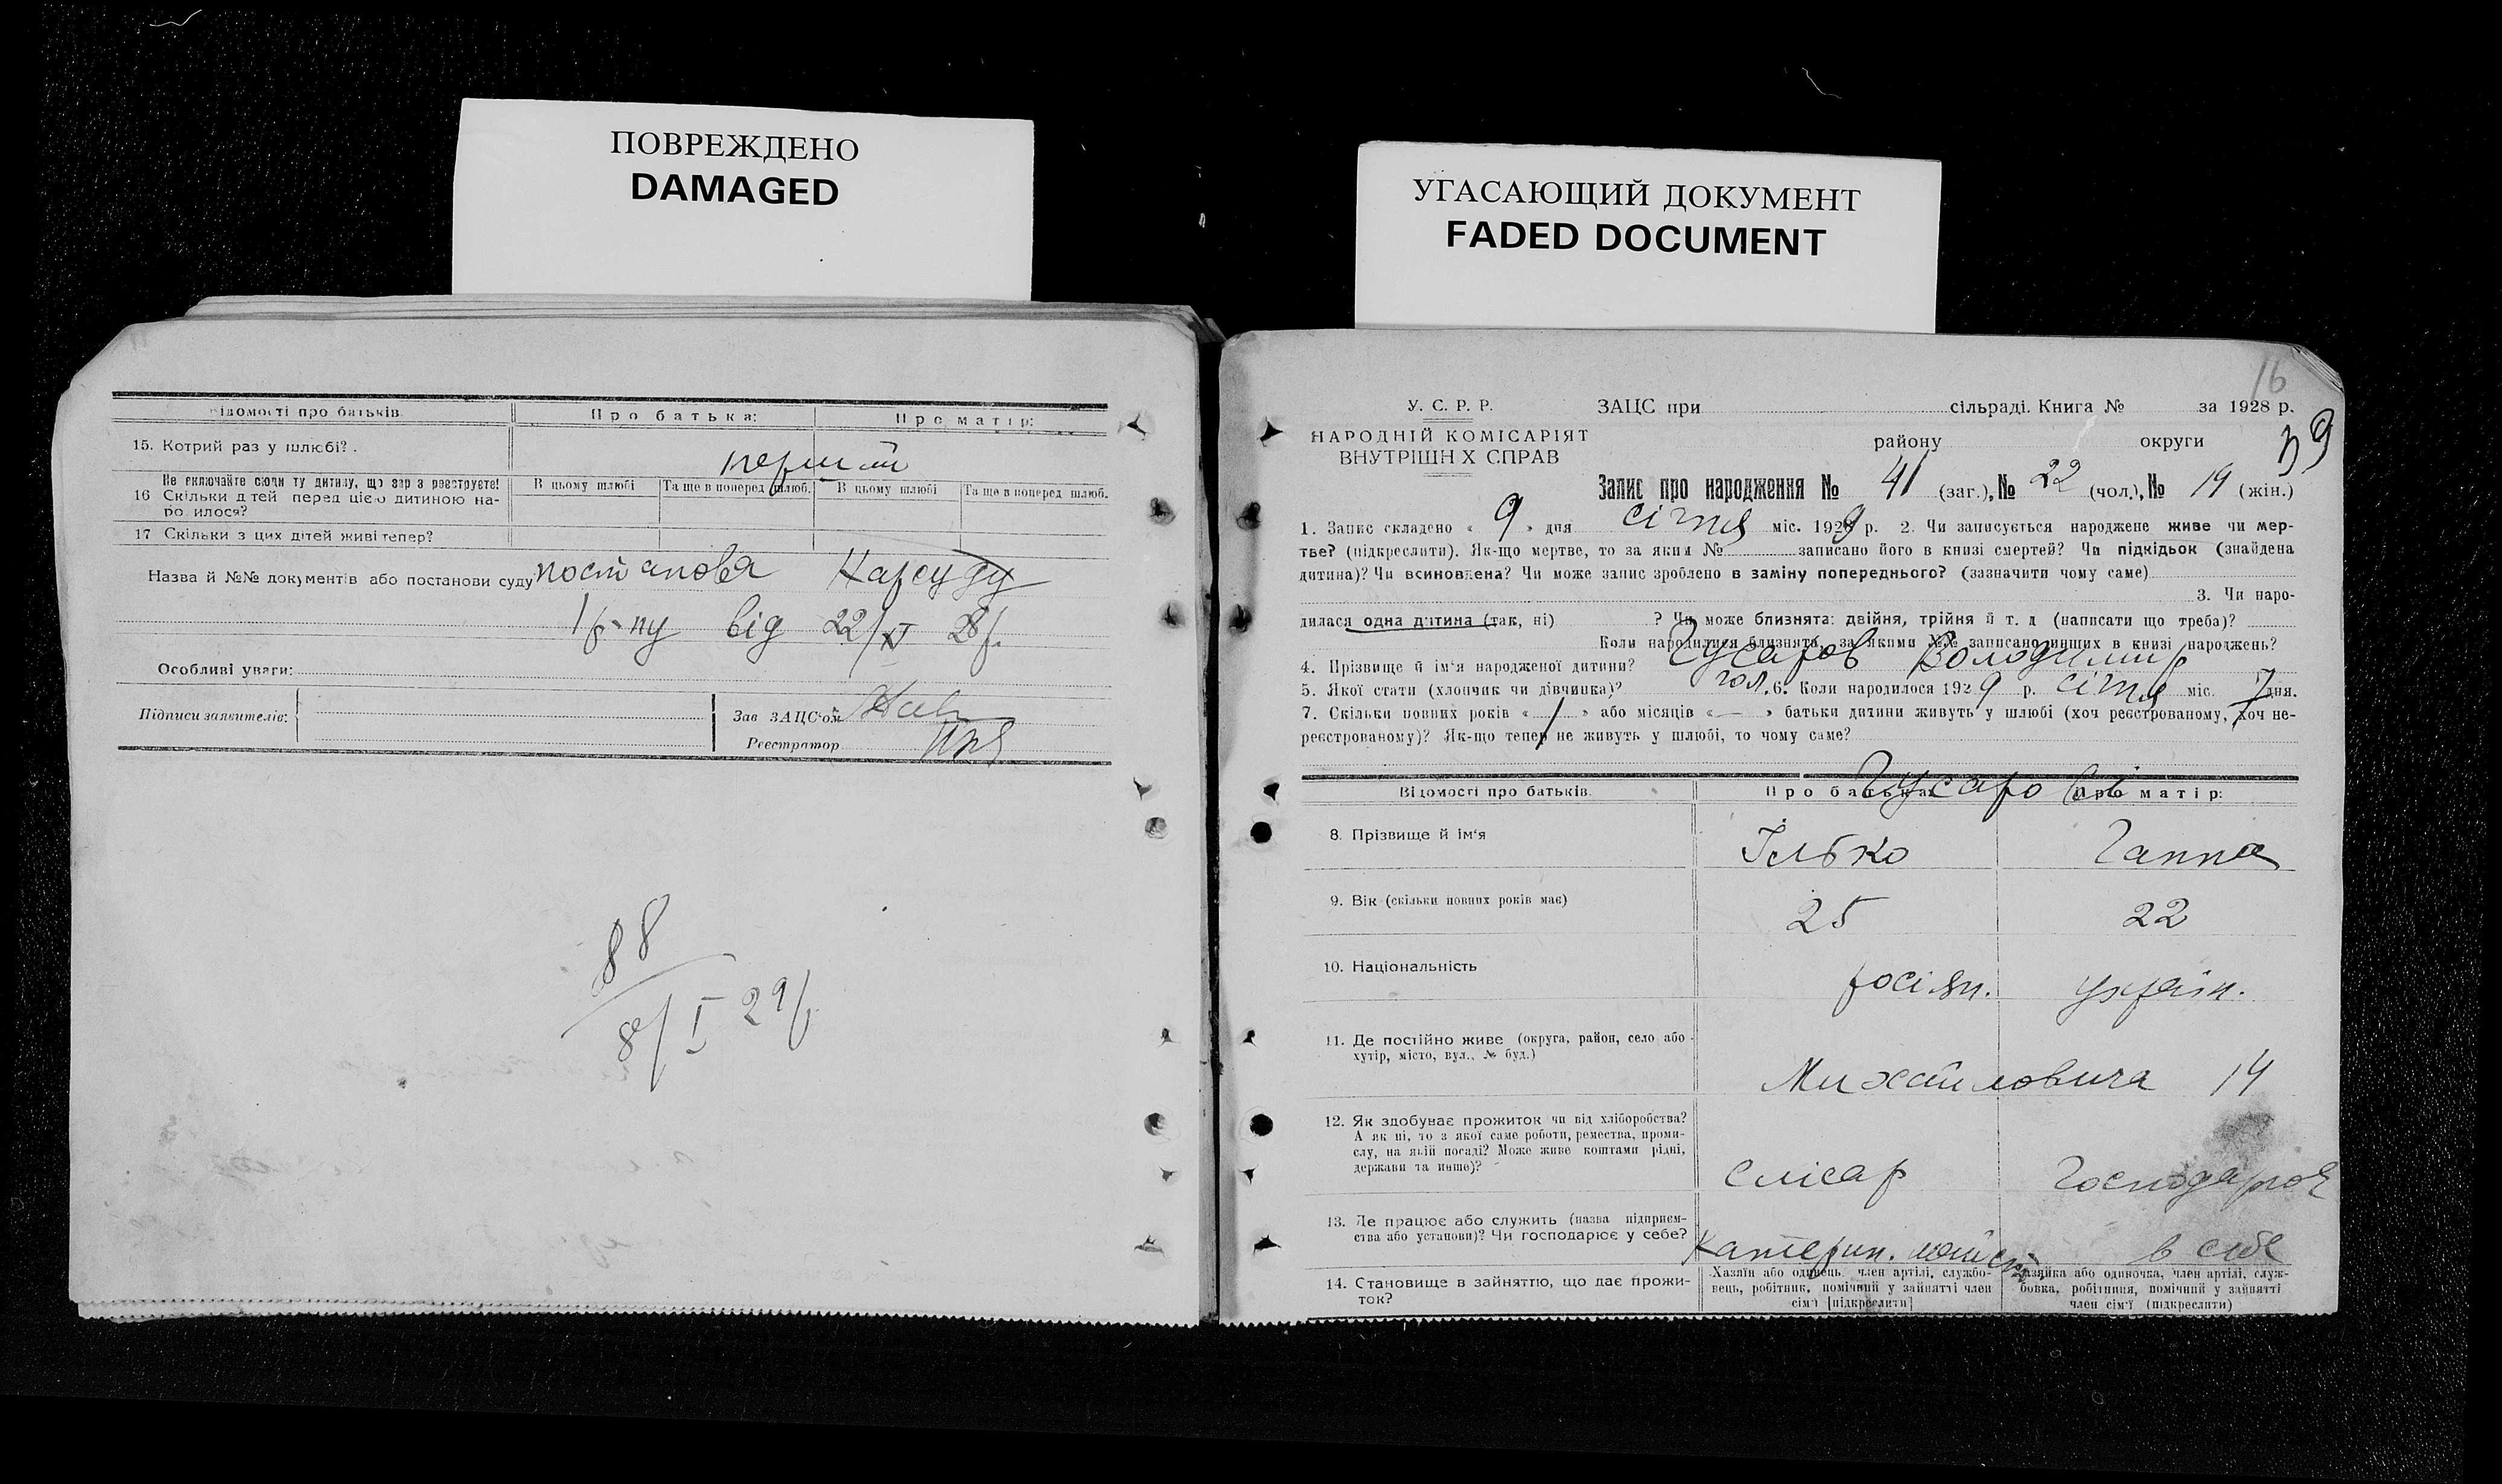 ПОВРЕЖДЕНО
DAMAGED
УГАСАЮЩИЙ ДОКУМЕНТ
FADED DOCUMENT
відомості про батьків. Про батька: Про матір:
15. Котрий раз у шлюбі?.
перший
Не включайте сюди ту дитину, що зар з реєструєте!
16 Скільки д тей перед цією дитиною на-
ро илося?
В цьому шлюбі Та ще в поперед шлюб. В цьому шлюбі Та ще в поперед шлюб.
17 Скільки з цих дітей живі тепер?
Назва й №№ документів або постанови суду постанова Нарсуду
від 22/XI 28 р.
Особливі уваги:
Підписи заявителів:
Зав ЗАЦС'ом
Реєстратор
88
8/I 29 р.
16
39
У. С. Р. Р.
НАРОДНІЙ КОМІСАРІЯТ
ВНУТРІШН Х СПРАВ
ЗАЦС при сільраді. Книга № за 1928 р.
району округи
Запис про народження № 41 (заг.), № 22 (чол.), № 19 (жін.)
1. Запис складено « 9 » дня січня міс. 1929 р. 2. Чи записується народжене живе чи мер-
тве? (підкреслити). Як-що мертве, то за яким № записано його в книзі смертей? Чи підкідьок (знайдена
дитина)? Чи всиновлена? Чи може запис зроблено в заміну попереднього? (зазначити чому саме)
3. Чи наро-
дилася одна дитина (так, ні) ? Чи може близнята: двійня, трійня й т. д (написати що треба)?
Коли народилися близнята, за якими №№ записано инших в книзі народжень?
4. Прізвище й ім'я народженої дитини? Гусаров Володимир
5. Якої стати (хлопчик чи дівчинка)? чол. 6. Коли народилося 1929 р. січня міс. 7 дня.
7. Скільки повних років « 1 » або місяців « — » батьки дитини живуть у шлюбі (хоч реєстрованому, хоч не-
реєстрованому)? Як-що тепер не живуть у шлюбі, то чому саме?
Відомості про батьків. Про батька: Про матір:
Гусарови
8. Прізвище й ім'я Ілько Ганна
9. Вік (скільки повних років має) 25 22
10. Національність росіян. україн.
11. Де постійно живе (округа, район, село або
хутір, місто, вул., № буд.)
Михайловича 14
12. Як здобуває прожиток чи від хліборобства?
А як ні, то з якої саме роботи, ремества, проми-
слу, на якій посаді? Може живе коштами рідні,
держави та инше)?
слісар господарює
13. Де працює або служить (назва підприєм-
ства або установи)? Чи господарює у себе?
Катерин. майст. в себе
14. Становище в зайняттю, що дає прожи-
ток?
Хазяїн або одинець член артілі, службо-
вець, робітник, помічний у зайнятті член
сім'ї [підкреслити]
Хазяйка або одиночка, член артілі, служ-
бовка, робітниця, помічний у зайнятті
член сім'ї (підкреслити)